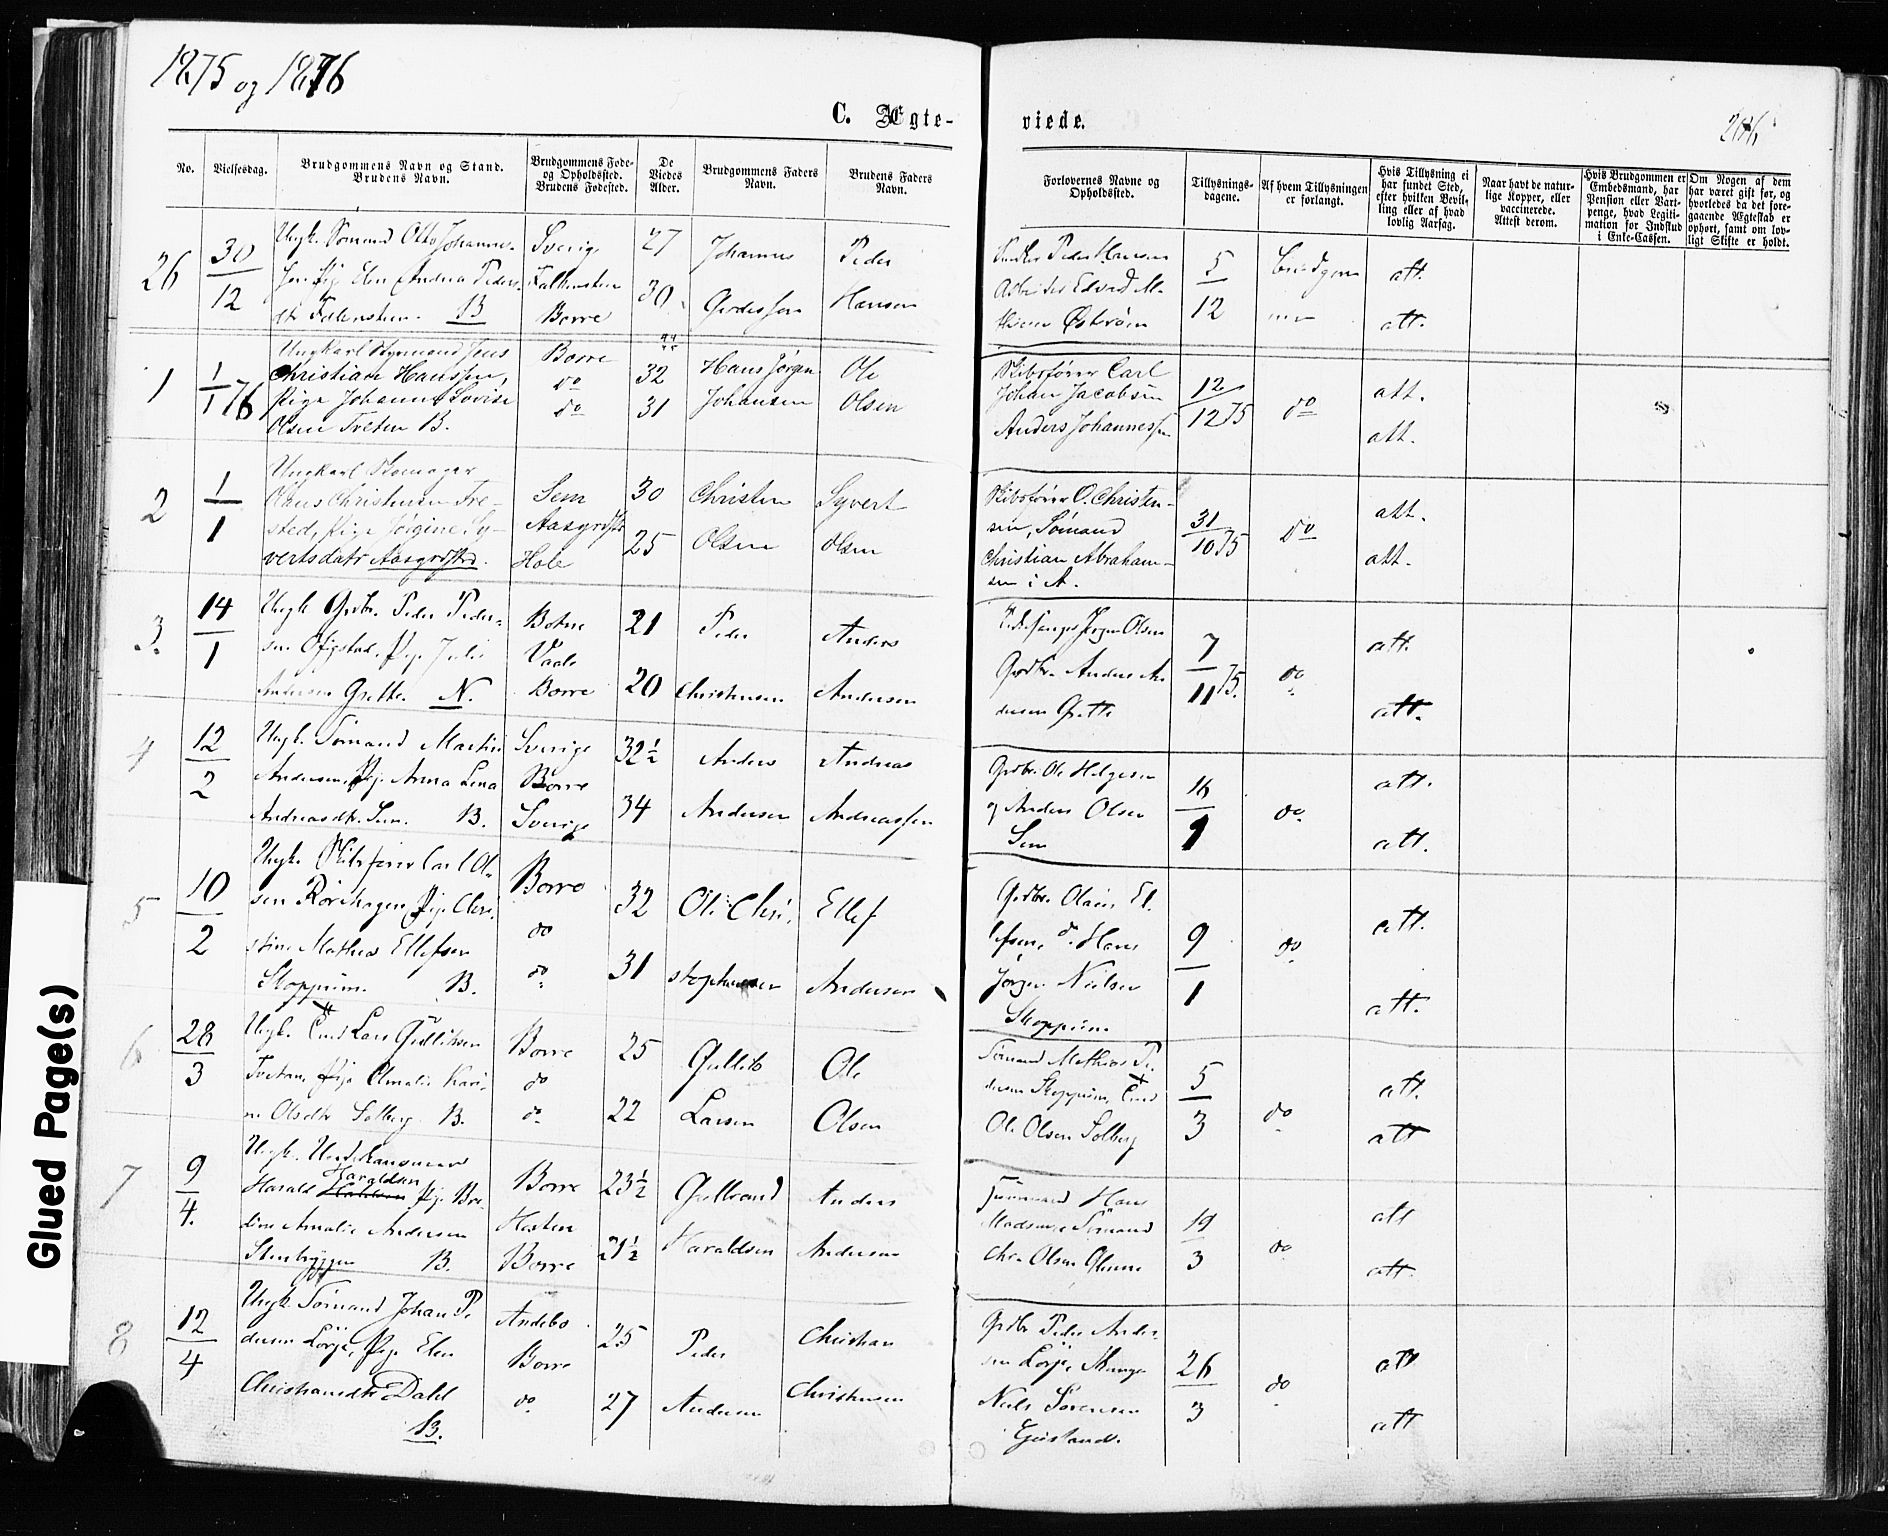 1875 og 1876
C. Ægte-
viede.
No.
Vielsesdag.
Brudgommens Navn og Stand.
Brudens Navn.
Brudgommens Føde-
og Opholdssted.
Brudens Fødested.
De
Viedes
Alder.
Brudgommens Faders
Navn.
Brudens Faders
Navn.
Forlovernes Navne og
Opholdssted.
Tillysnings-
dagene.
Af hvem Tillysningen
er forlangt.
Hvis Tillysning ei
har fundet Sted,
efter hvilken Bevil-
ling eller af hvad
lovlig Aarsag.
Naar havt de natur-
lige Kopper, eller
vaccinerede.
Attest derom.
Hvis Brudgommen er
Embedsmand, har
Pension eller Vart-
penge, hvad Legiti-
mation for Indskud
i Enke-Cassen.
Om Nogen af dem
har været gift før, og
hvorledes da det fore-
gaaende Ægteskab er
ophørt, samt om lov-
ligt Skifte er holdt.
26
30
12
Ungk. Sømand Otto Johannes-
Pige Elen Andrea Peders-
B
Sverige
Falkensten
Borre
27
30
Johannes
Peder
Hansen
Peder Hansen
Edvard
5
12
Brudgom
men
att.
att.
1
1
1 76
Ungkarl Styrmand Jens
Christian Hanssen,
Pige Johanne Lovise
Olsen Treten B.
Borre
do
do
32
31
Hans Jørgen
Johansen
Ole
Olsen
Skibsfører Carl
Johan Jacobsen
Anders Johannessen
12
12 75
do
att.
att.
2
1
1
Ungkarl Skomager
Olaus Christensen Fre-
sted, Pige Jørgine Sy-
vertsdatr Aasgrdstrd.
Sem
Aasgrdstr
Hole
30
25
Christen
Olsen
Syvert
Olsen
Skibsfører O. Christen-
sen, Sømand
Christian Abraham-
sen i A.
31
10 75
do
att.
att.
3.
14
1
Ungk. Grdbr. Peder Peder-
sen Pige Julie
Andersen Grette. N.
Botne
Vaale
Borre
21
20
Peder
Christensen
Anders
Andersen
Jørgen Olsen
Grdbr. Anders An
dersen Grette
7
11 75.
do
att.
att.
4
12
2
Ungk. Sømand Martin
Andersen, Pige Anna Lena
Andreasdtr. Sem. B.
Sverige
Borre
Sverige
32½
34
Anders
Andersen
Andreas
Andreassen
Grdbr. Ole Helgesen
og Anders Olsen
Sem
16
1
do
att.
att.
5
10
2
Ungk. Skibsfører Carl Ol-
sen Rørehagen, Pige Chri-
stine Mathea Ellefsen
Skoppum. B.
Borre
do
do
32
31
Ole Chri.
stophersen
Ellef
Andersen
Grdbr. Olaus El.
lefsen, do Hans
Jørgen Nielsen
Skoppum
9
1
do
att.
att.
6
28
3
Ungk. Lars Gulliksen
Tvetan, Pige Amalie Kari-
ne Olsdtr Solberg B.
Borre
do
do
25
22
Gullik
Larsen
Ole
Olsen
Sømand Mathias Pe.
dersen Skoppum,
Ole Olsen Solberg
5
3
do
att.
att
7
9
4.
Haraldsen
Harald Pige Be
dine Amalie Andersen
Stenbyggen B.
Borre
Horten
Borre
23½
21½
Gulbrand
Haraldsen
Anders
Andersen
Tømmermand Hans
Madsen, Sømand
Chr. Olsen Glenne
19
3
do
att
att.
8
12
4
Ungk Sømand Johan Pe
dersen Lørje, Pige Elen
Christiansdtr Dahl
B.
Andebo
Borre
do
25
27
Peder
Andersen
Christian
Christensen
Grdbr Peder Ander-
sen Lørje,
Niels Sørensen
26
3
do
att
att
Glued Page(s)